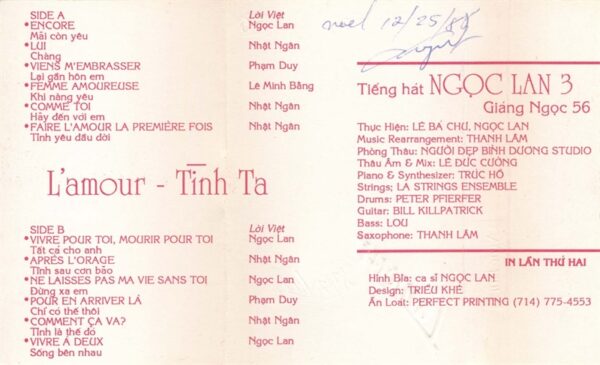 SIDE A Lời Việt
•ENCORE Ngọc Lan
Mãi còn yêu
•LUI Nhật Ngân
Chàng
•VIENS M'EMBRASSER Phạm Duy
Lại gần hôn em
•FEMME AMOUREUSE Lê Minh Bằng
Khi nàng yêu
•COMME TOI Nhật Ngân
Hãy đến với em
•FAIRE L'AMOUR LA PREMIÈRE FOIS Nhật Ngân
Tình yêu đầu đời
L'amour - Tình Ta
SIDE B Lời Việt
•VIVRE POUR TOI, MOURIR POUR TOI Ngọc Lan
Tất cả cho anh
•APRÈS L'ORAGE Nhật Ngân
Tình sau cơn bão
•NE LAISSES PAS MA VIE SANS TOI Ngọc Lan
Đừng xa em
•POUR EN ARRIVER LÁ Phạm Duy
Chỉ có thế thôi
•COMMENT ÇA VA? Nhật Ngân
Tình là thế đó
•VIVRE À DEUX Ngọc Lan
Sống bên nhau
noel 12/25/88
Tiếng hát NGỌC LAN 3
Giáng Ngọc 56
Thực Hiện: LÊ BÁ CHƯ, NGỌC LAN
Music Rearrangement: THANH LÂM
Phòng Thâu: NGƯỜI ĐẸP BÌNH DƯƠNG STUDIO
Thâu Âm & Mix: LÊ ĐỨC CƯỜNG
Piano & Synthesizer: TRÚC HỒ
Strings; LA STRINGS ENSEMBLE
Drums: PETER PFIERFER
Guitar: BILL KILLPATRICK
Bass: LOU
Saxophone: THANH LÂM
IN LẦN THỨ HAI
Hình Bìa: ca sĩ NGỌC LAN
Design: TRIỀU KHÊ
Ấn Loát: PERFECT PRINTING (714) 775-4553